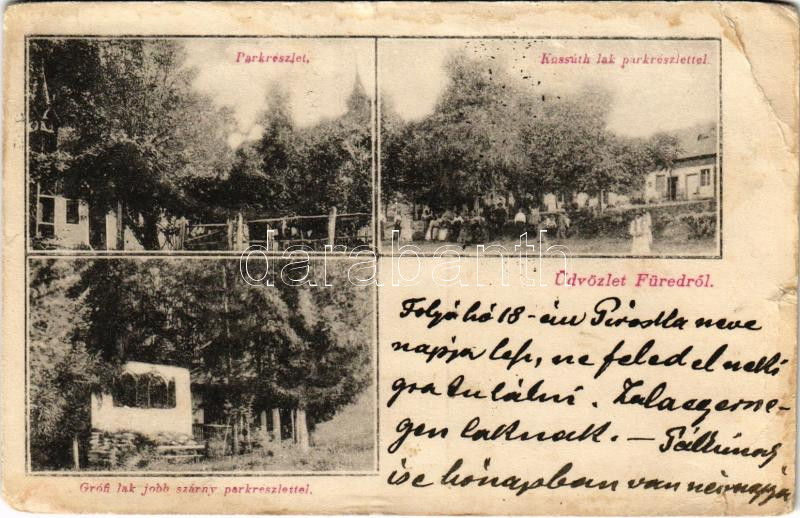 Parkrészlet.
Kossúth lak parkrészlettel.
Üdvözlet Füredről.
Folyó hó 18-án Piroska neve
napja lesz, ne feled el neki
gratulálni. Zalaegersze-
gen laknak. —
is e hónapban van névnapja
Grófi lak jobb szárny parkrészlettel.
darabanth